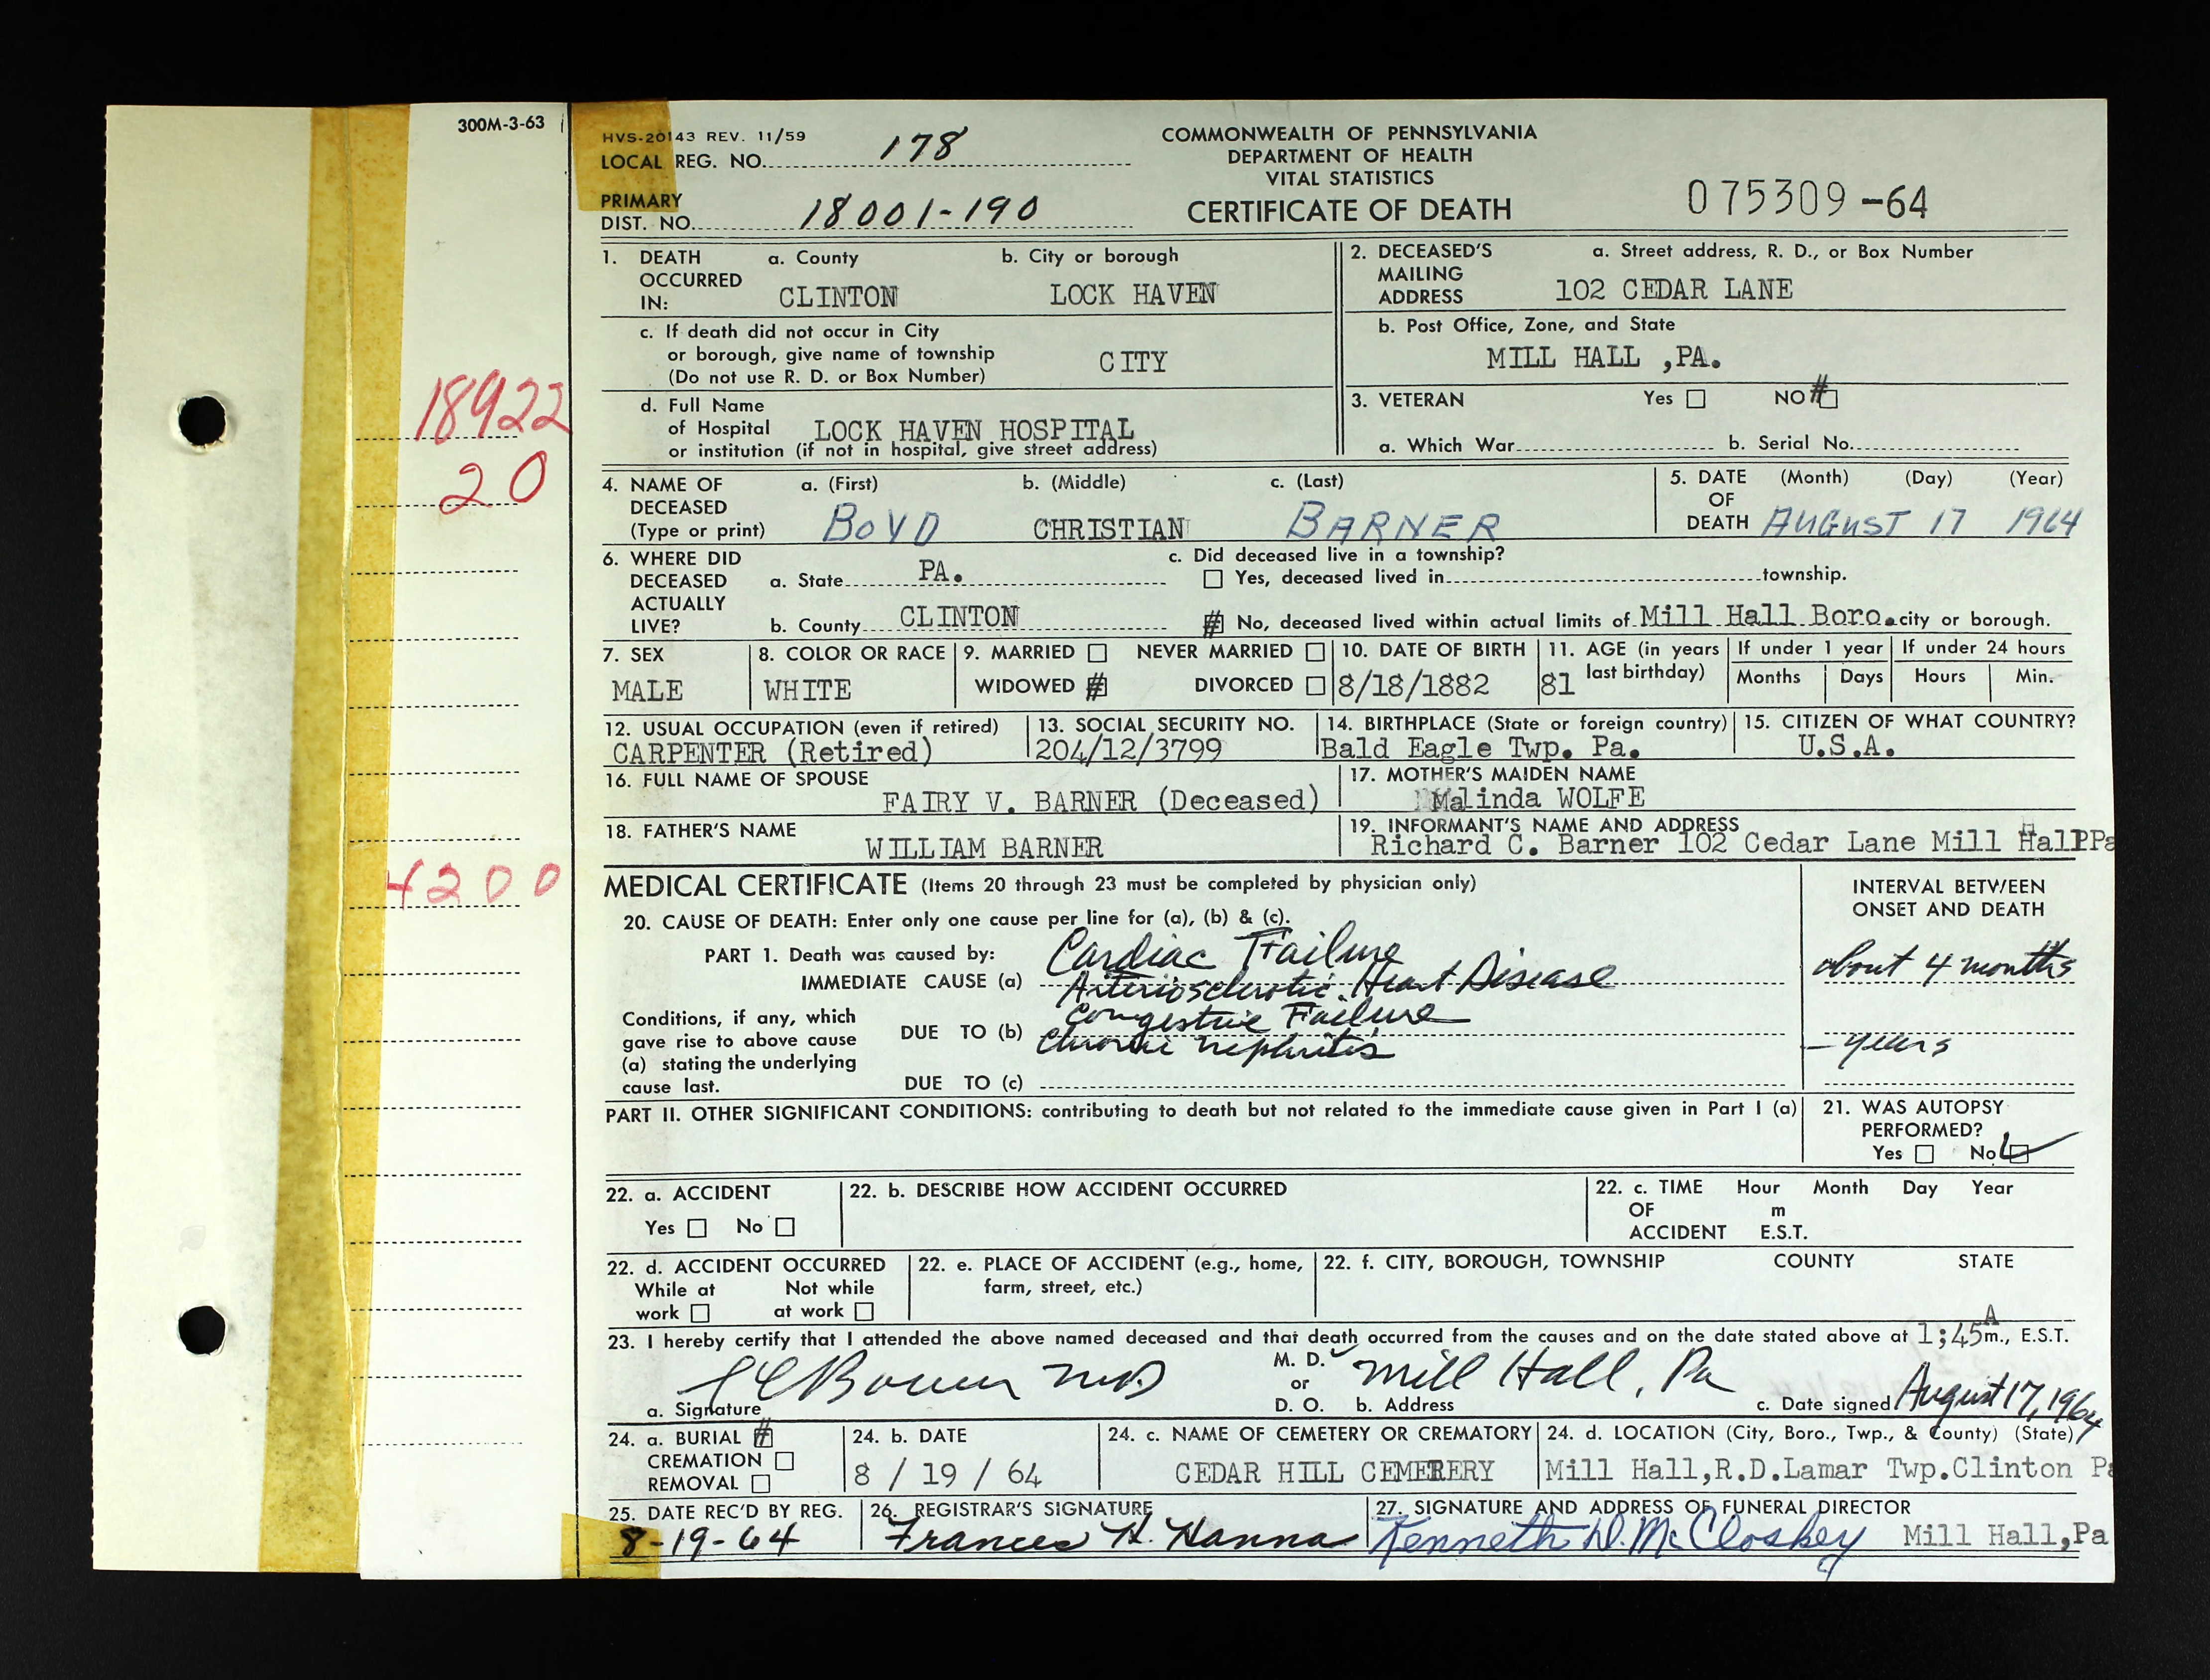 300M-3-63
HVS-20143 REV. 11/59
LOCAL REG. NO. 178
COMMONWEALTH OF PENNSYLVANIA
DEPARTMENT OF HEALTH
VITAL STATISTICS
PRIMARY
DIST. NO. 18001-190
CERTIFICATE OF DEATH
075309-64
1. DEATH OCCURRED IN: a. County CLINTON b. City or borough LOCK HAVEN
2. DECEASED'S MAILING ADDRESS a. Street address, R. D., or Box Number
102 CEDAR LANE
c. If death did not occur in City
or borough, give name of township CITY
(Do not use R. D. or Box Number)
b. Post Office, Zone, and State
MILL HALL ,PA.
18922
d. Full Name
of Hospital LOCK HAVEN HOSPITAL
or institution (if not in hospital, give street address)
3. VETERAN Yes NO #
a. Which War b. Serial No.
20
4. NAME OF DECEASED (Type or print) a. (First) BOYD b. (Middle) CHRISTIAN c. (Last) BARNER
5. DATE OF DEATH (Month) (Day) (Year) AUGUST 17 1964
6. WHERE DID DECEASED ACTUALLY LIVE? a. State PA.
b. County CLINTON
c. Did deceased live in a township?
Yes, deceased lived in township.
# No, deceased lived within actual limits of Mill Hall Boro. city or borough.
7. SEX MALE
8. COLOR OR RACE WHITE
9. MARRIED NEVER MARRIED
WIDOWED # DIVORCED
10. DATE OF BIRTH 8/18/1882
11. AGE (in years last birthday) 81
If under 1 year Months Days
If under 24 hours Hours Min.
12. USUAL OCCUPATION (even if retired)
CARPENTER (Retired)
13. SOCIAL SECURITY NO.
204/12/3799
14. BIRTHPLACE (State or foreign country)
Bald Eagle Twp. Pa.
15. CITIZEN OF WHAT COUNTRY?
U.S.A.
16. FULL NAME OF SPOUSE
FAIRY V. BARNER (Deceased)
17. MOTHER'S MAIDEN NAME
Malinda WOLFE
18. FATHER'S NAME
WILLIAM BARNER
19. INFORMANT'S NAME AND ADDRESS
Richard C. Barner 102 Cedar Lane Mill Hall Pa
4200
MEDICAL CERTIFICATE (Items 20 through 23 must be completed by physician only)
INTERVAL BETWEEN
ONSET AND DEATH
20. CAUSE OF DEATH: Enter only one cause per line for (a), (b) & (c).
PART 1. Death was caused by: Cardiac Failure
about 4 months
IMMEDIATE CAUSE (a) Arteriosclerotic Heart Disease
Conditions, if any, which
gave rise to above cause
(a) stating the underlying
cause last.
Congestive Failure
DUE TO (b) Chronic nephritis
- years
DUE TO (c)
PART II. OTHER SIGNIFICANT CONDITIONS: contributing to death but not related to the immediate cause given in Part I (a)
21. WAS AUTOPSY
PERFORMED?
Yes No
22. a. ACCIDENT
Yes No
22. b. DESCRIBE HOW ACCIDENT OCCURRED
22. c. TIME OF ACCIDENT Hour Month Day Year
m
E.S.T.
22. d. ACCIDENT OCCURRED
While at work Not while at work
22. e. PLACE OF ACCIDENT (e.g., home,
farm, street, etc.)
22. f. CITY, BOROUGH, TOWNSHIP COUNTY STATE
23. I hereby certify that I attended the above named deceased and that death occurred from the causes and on the date stated above at 1;45 A m., E.S.T.
a. Signature MD
M. D. or D. O. b. Address Mill Hall, Pa
c. Date signed August 17, 1964
24. a. BURIAL #
CREMATION
REMOVAL
24. b. DATE
8 / 19 / 64
24. c. NAME OF CEMETERY OR CREMATORY
CEDAR HILL CEMETERY
24. d. LOCATION (City, Boro., Twp., & County) (State)
Mill Hall,R.D.Lamar Twp.Clinton Pa
25. DATE REC'D BY REG.
8-19-64
26. REGISTRAR'S SIGNATURE
Frances H. Hanna
27. SIGNATURE AND ADDRESS OF FUNERAL DIRECTOR
Kenneth D. McCloskey Mill Hall,Pa